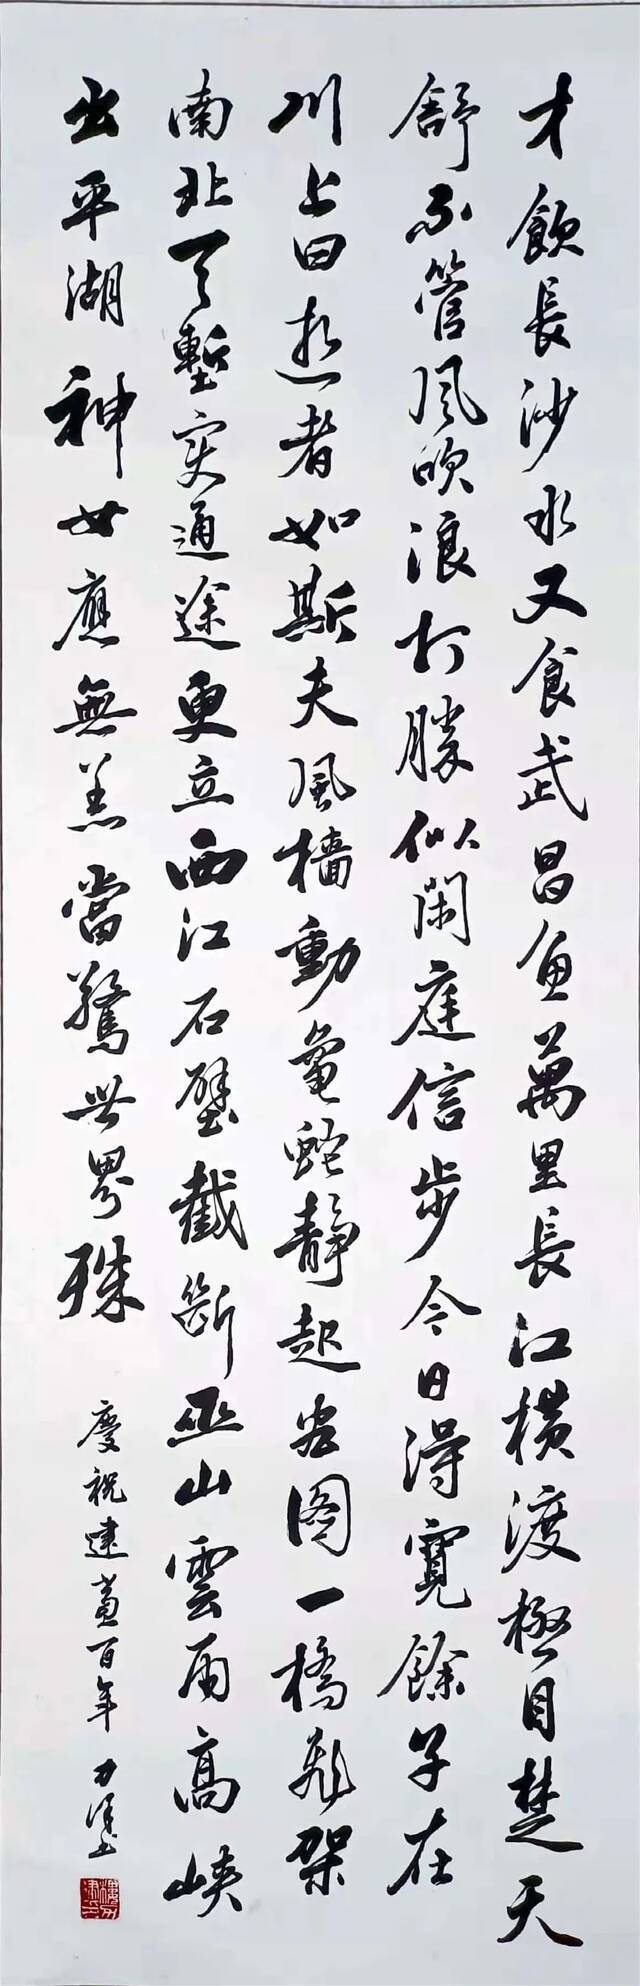 才飲長沙水又食武昌魚萬里長江橫渡極目楚天
舒不管風吹浪打勝似閑庭信步今日得寬餘子在
川上曰逝者如斯夫風檣動龜蛇靜起宏图一橋飛架
南北天塹变通途更立西江石壁截斷巫山雲雨高峽
出平湖神女應無恙當驚世界殊
慶祝建黨百年